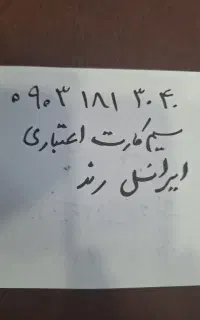 ۰۹۰۳ ۱۸۱ ۳۰۴۰
سیم کارت اعتباری
ایرانسل رند